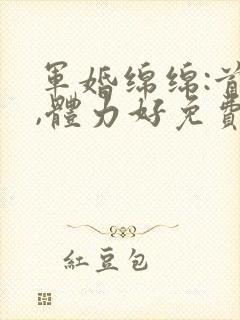 軍婚綿綿:首
,體力好免費
紅豆包